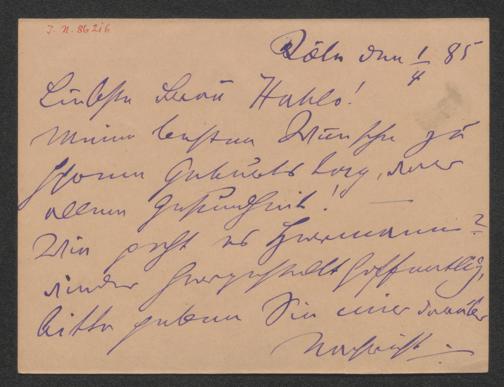 J. N. 86216
Köln den 1/4 85
Liebste Frau Hahlo!
Meine besten Wünsche zu
Ihrem Geburtstag, vor
allem Gesundheit! —
Wie geht es Hermann?
wieder hergestellt hoffentlich,
bitte geben Sie mir darüber
Nachricht. —